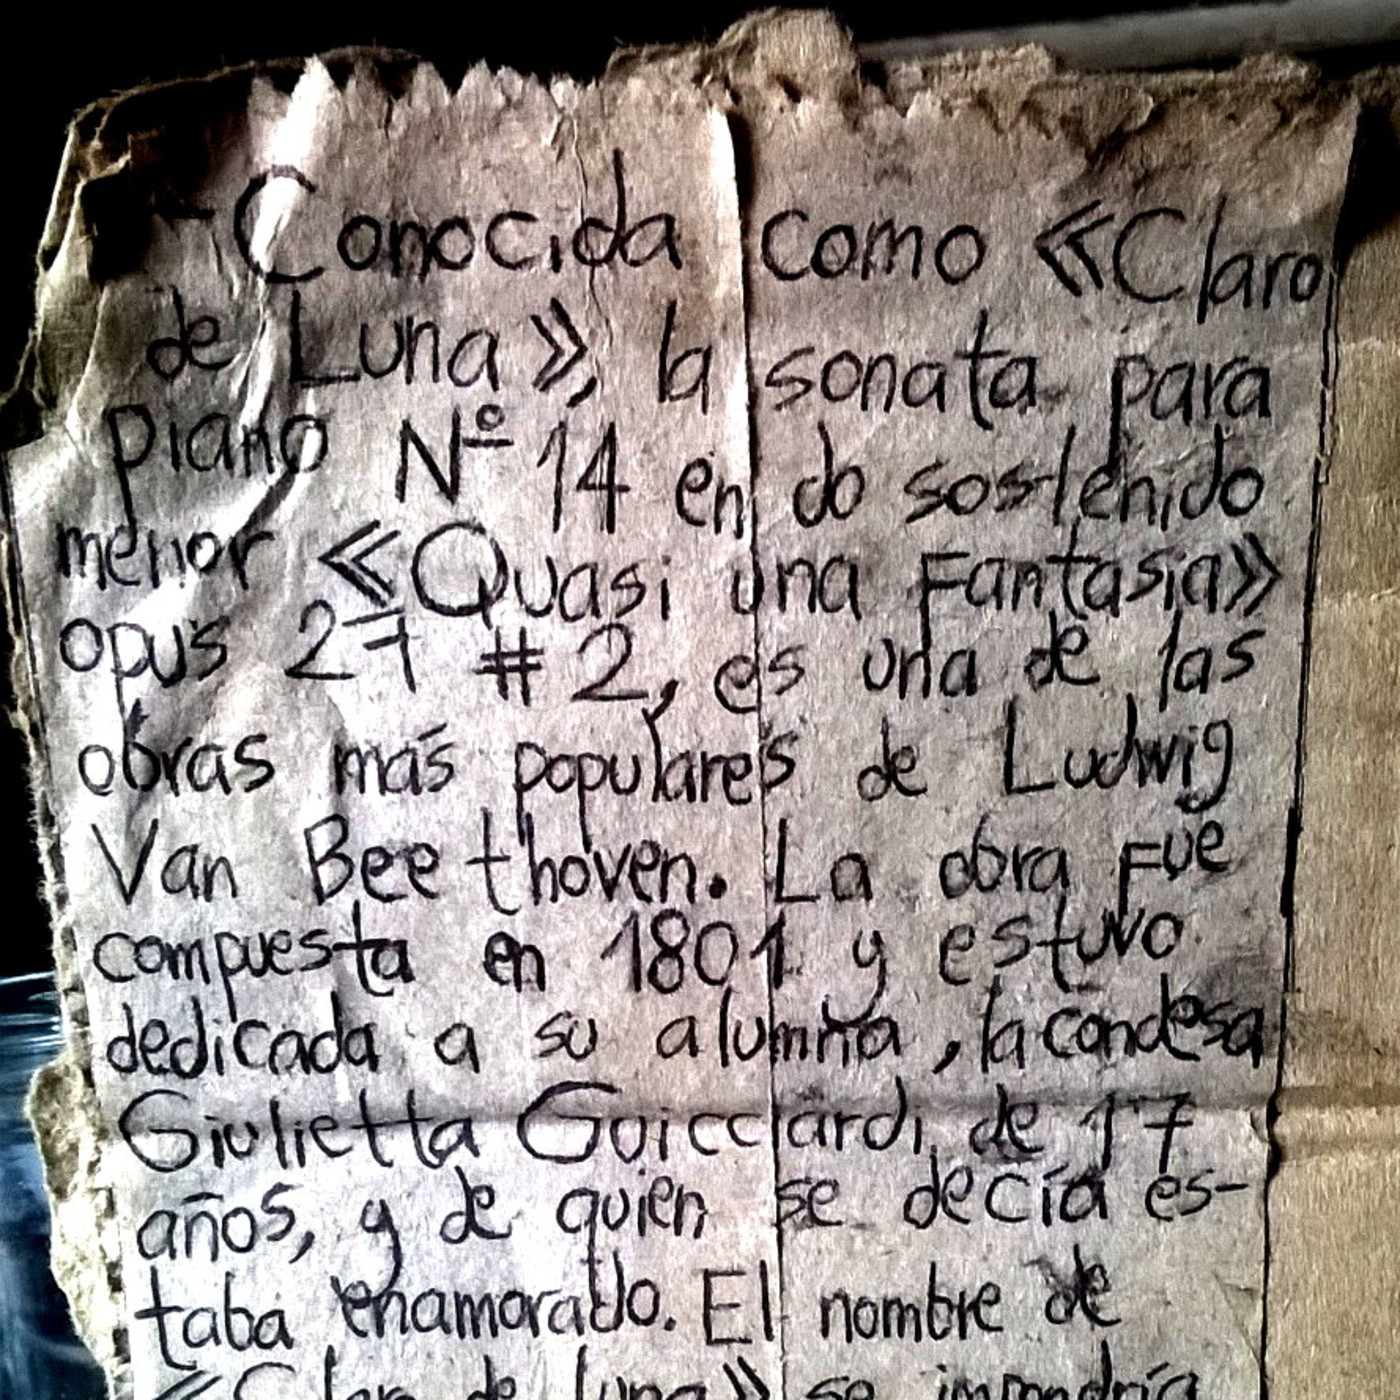 -Conocida como «Claro
de Luna», la sonata para
piano Nº 14 en do sostenido
menor «Quasi una Fantasia»
opus 27 #2, es una de las
obras más populares de Ludwig
Van Beethoven. La obra fue
compuesta en 1801 y estuvo
dedicada a su alumna, la condesa
Giulietta Guicciardi, de 17
años, y de quien se decía es-
taba enamorado. El nombre de
«Claro de Luna» se impondría